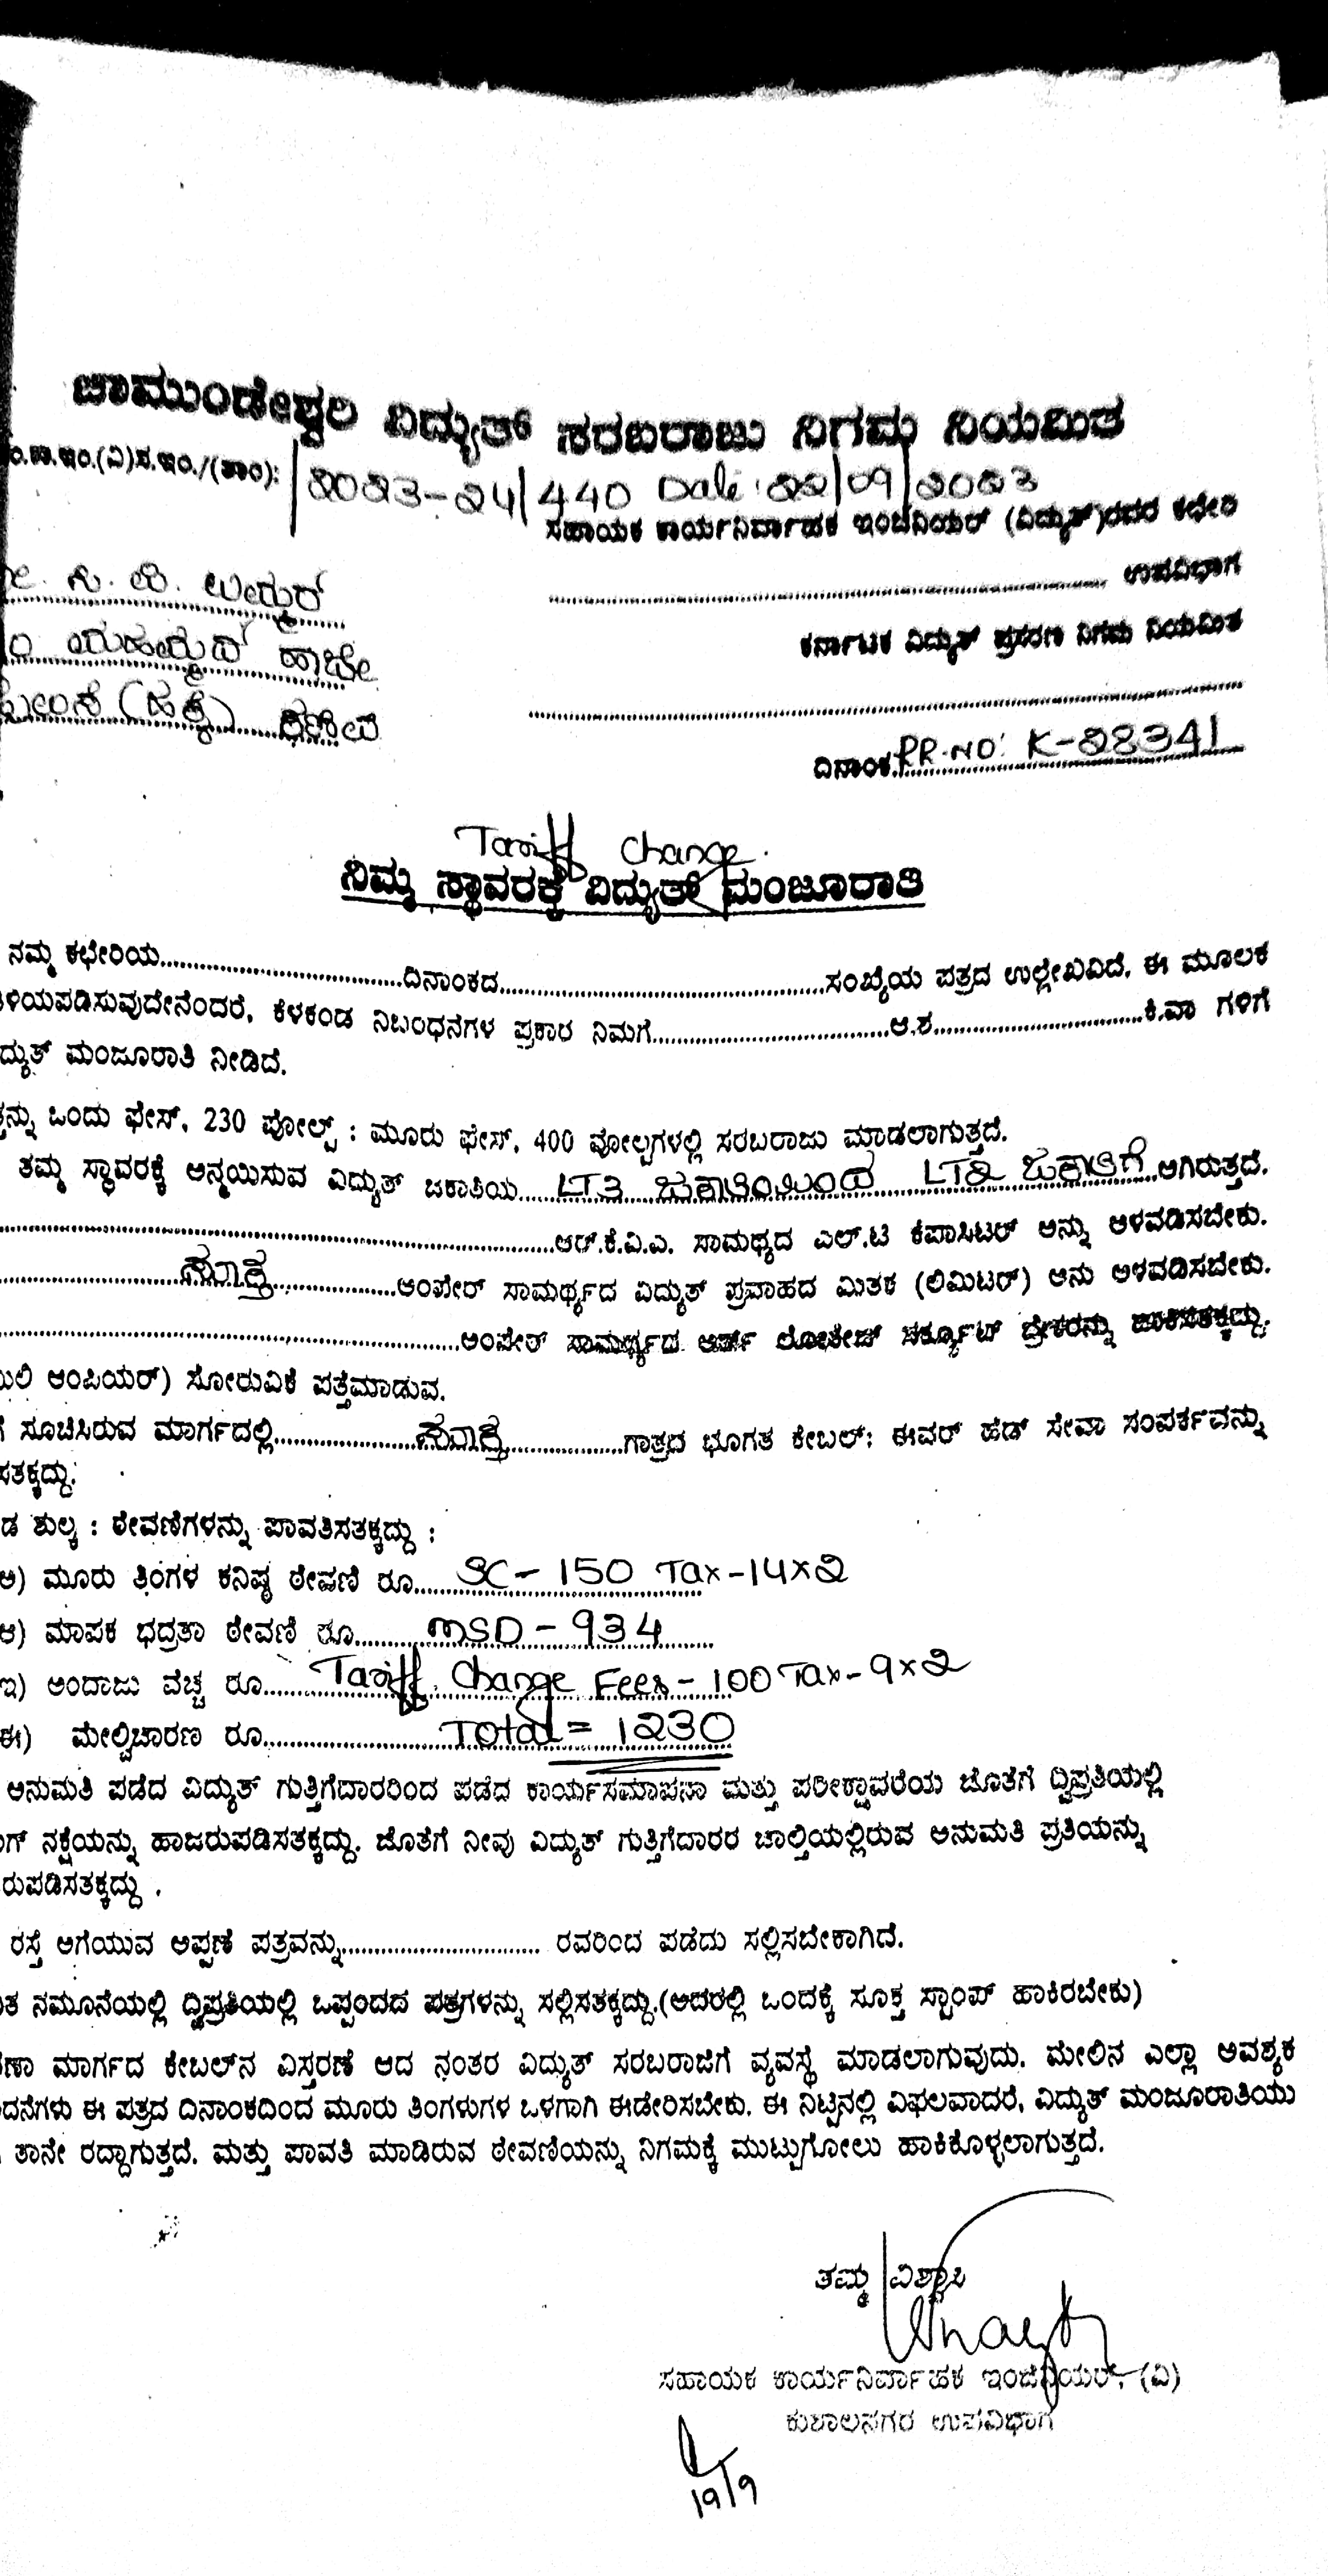 ಚಾಮುಂಡೇಶ್ವರಿ ವಿದ್ಯುತ್ ಸರಬರಾಜು ನಿಗಮ ನಿಯಮಿತ
2023-24/440 Date: 22/09/2023
ಸಹಾಯಕ ಕಾರ್ಯನಿರ್ವಾಹಕ ಇಂಜಿನಿಯರ್ (ವಿದ್ಯುತ್)ರವರ ಕಛೇರಿ
ಉಪವಿಭಾಗ
ಕರ್ನಾಟಕ ವಿದ್ಯುತ್ ಪ್ರಸರಣ ನಿಗಮ ನಿಯಮಿತ
ದಿನಾಂಕ RR.NO: K-28341
Tariff Change.
ನಿಮ್ಮ ಸ್ಥಾವರಕ್ಕೆ ವಿದ್ಯುತ್ ಮಂಜೂರಾತಿ
ನಮ್ಮ ಕಛೇರಿಯ..........ದಿನಾಂಕದ..........ಸಂಖ್ಯೆಯ ಪತ್ರದ ಉಲ್ಲೇಖವಿದೆ. ಈ ಮೂಲಕ
ಳಿಯಪಡಿಸುವುದೇನೆಂದರೆ, ಕೆಳಕಂಡ ನಿಬಂಧನೆಗಳ ಪ್ರಕಾರ ನಿಮಗೆ..........ಆ.ಶ..........ಕಿ.ವಾ ಗಳಿಗೆ
ದ್ಯುತ್ ಮಂಜೂರಾತಿ ನೀಡಿದೆ.
ನ್ನು ಒಂದು ಫೇಸ್, 230 ವೋಲ್ಟ್ : ಮೂರು ಫೇಸ್, 400 ವೋಲ್ಟಗಳಲ್ಲಿ ಸರಬರಾಜು ಮಾಡಲಾಗುತ್ತದೆ.
ತಮ್ಮ ಸ್ಥಾವರಕ್ಕೆ ಅನ್ವಯಿಸುವ ವಿದ್ಯುತ್ ಜಕಾತಿಯ.....LT3 ಜಕಾತಿಯಿಂದ LT2 ಜಕಾತಿಗೆ...ಆಗಿರುತ್ತದೆ.
..........ಆರ್.ಕೆ.ವಿ.ಎ. ಸಾಮಥ್ಯದ ಎಲ್.ಟಿ ಕೆಪಾಸಿಟರ್ ಅನ್ನು ಅಳವಡಿಸಬೇಕು.
..........ಅಂಪೇರ್ ಸಾಮರ್ಥ್ಯದ ವಿದ್ಯುತ್ ಪ್ರವಾಹದ ಮಿತಕ (ಲಿಮಿಟರ್) ಆನು ಅಳವಡಿಸಬೇಕು.
..........ಅಂಪೇರ್ ಸಾಮರ್ಥ್ಯದ ಅರ್ಥ್ ಲೀಕೇಜ್ ಸರ್ಕ್ಯೂಟ್ ಬ್ರೇಕರನ್ನು ಹಾಕಿಸತಕ್ಕದ್ದು.
ಲಿ ಆಂಪಿಯರ್) ಸೋರುವಿಕೆ ಪತ್ತೆಮಾಡುವ.
ಸೂಚಿಸಿರುವ ಮಾರ್ಗದಲ್ಲಿ..........ಗಾತ್ರದ ಭೂಗತ ಕೇಬಲ್: ಈವರ್ ಹೆಡ್ ಸೇವಾ ಸಂಪರ್ಕವನ್ನು
ಸತಕ್ಕದ್ದು.
ಡ ಶುಲ್ಕ : ಠೇವಣಿಗಳನ್ನು ಪಾವತಿಸತಕ್ಕದ್ದು :
ಅ) ಮೂರು ತಿಂಗಳ ಕನಿಷ್ಠ ಠೇವಣಿ ರೂ.....SC - 150 Tax-14x2
ಆ) ಮಾಪಕ ಭದ್ರತಾ ಠೇವಣಿ ರೂ.....MSD - 934
ಇ) ಅಂದಾಜು ವೆಚ್ಚ ರೂ.....Tariff Change Fees - 100 Tax-9x2
ಈ) ಮೇಲ್ವಿಚಾರಣ ರೂ.....Total = 1230
ಅನುಮತಿ ಪಡೆದ ವಿದ್ಯುತ್ ಗುತ್ತಿಗೆದಾರರಿಂದ ಪಡೆದ ಕಾರ್ಯಸಮಾಪನಾ ಮತ್ತು ಪರೀಕ್ಷಾವರೆಯ ಜೊತೆಗೆ ದ್ವಿಪ್ರತಿಯಲ್ಲಿ
ಗ್ ನಕ್ಷೆಯನ್ನು ಹಾಜರುಪಡಿಸತಕ್ಕದ್ದು. ಜೊತೆಗೆ ನೀವು ವಿದ್ಯುತ್ ಗುತ್ತಿಗೆದಾರರ ಚಾಲ್ತಿಯಲ್ಲಿರುವ ಅನುಮತಿ ಪ್ರತಿಯನ್ನು
ರುಪಡಿಸತಕ್ಕದ್ದು .
ರಸ್ತೆ ಅಗೆಯುವ ಅಪ್ಪಣೆ ಪತ್ರವನ್ನು.......... ರವರಿಂದ ಪಡೆದು ಸಲ್ಲಿಸಬೇಕಾಗಿದೆ.
ತ ನಮೂನೆಯಲ್ಲಿ ದ್ವಿಪ್ರತಿಯಲ್ಲಿ ಒಪ್ಪಂದದ ಪತ್ರಗಳನ್ನು ಸಲ್ಲಿಸತಕ್ಕದ್ದು.(ಅದರಲ್ಲಿ ಒಂದಕ್ಕೆ ಸೂಕ್ತ ಸ್ಟಾಂಪ್ ಹಾಕಿರಬೇಕು)
ಣಾ ಮಾರ್ಗದ ಕೇಬಲ್‌ನ ವಿಸ್ತರಣೆ ಆದ ನಂತರ ವಿದ್ಯುತ್ ಸರಬರಾಜಿಗೆ ವ್ಯವಸ್ಥೆ ಮಾಡಲಾಗುವುದು. ಮೇಲಿನ ಎಲ್ಲಾ ಅವಶ್ಯಕ
ದನೆಗಳು ಈ ಪತ್ರದ ದಿನಾಂಕದಿಂದ ಮೂರು ತಿಂಗಳುಗಳ ಒಳಗಾಗಿ ಈಡೇರಿಸಬೇಕು. ಈ ನಿಟ್ಟನಲ್ಲಿ ವಿಫಲವಾದರೆ, ವಿದ್ಯುತ್ ಮಂಜೂರಾತಿಯು
ತಾನೇ ರದ್ದಾಗುತ್ತದೆ. ಮತ್ತು ಪಾವತಿ ಮಾಡಿರುವ ಠೇವಣಿಯನ್ನು ನಿಗಮಕ್ಕೆ ಮುಟ್ಟುಗೋಲು ಹಾಕಿಕೊಳ್ಳಲಾಗುತ್ತದೆ.
ತಮ್ಮ ವಿಶ್ವಾಸಿ
ಸಹಾಯಕ ಕಾರ್ಯನಿರ್ವಾಹಕ ಇಂಜಿನಿಯರ್, (ವಿ)
ಕುಶಾಲನಗರ ಉಪವಿಭಾಗ
19/9